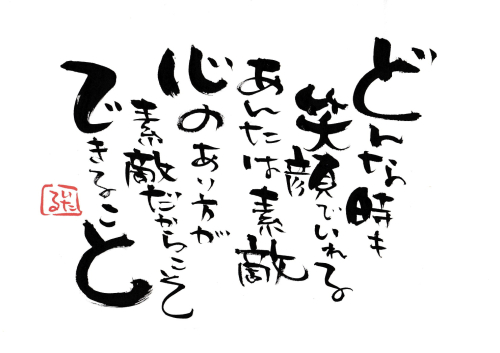 どんな時も
笑顔でいれる
あんたは素敵
心のあり方が
素敵だからこそ
できること